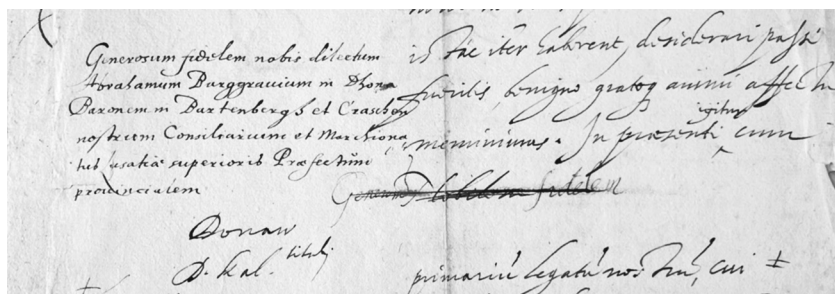 Generosum fidelem nobis dilectum
Abrahamum Burggravium in Dhona
Baronem in Wartenbergh et Craschen
nostrum Consiliarium et Marchiona
tus Lusatiæ superioris Præfectum
provincialem
Donaw
D. Kal.
is hac iter haberent, desiderari passi
fueritis, benigno gratoq animi affectu
igitur
meminimus. In præsenti cum
fidelem
primariũ legatũ nostrũ, cui ‡